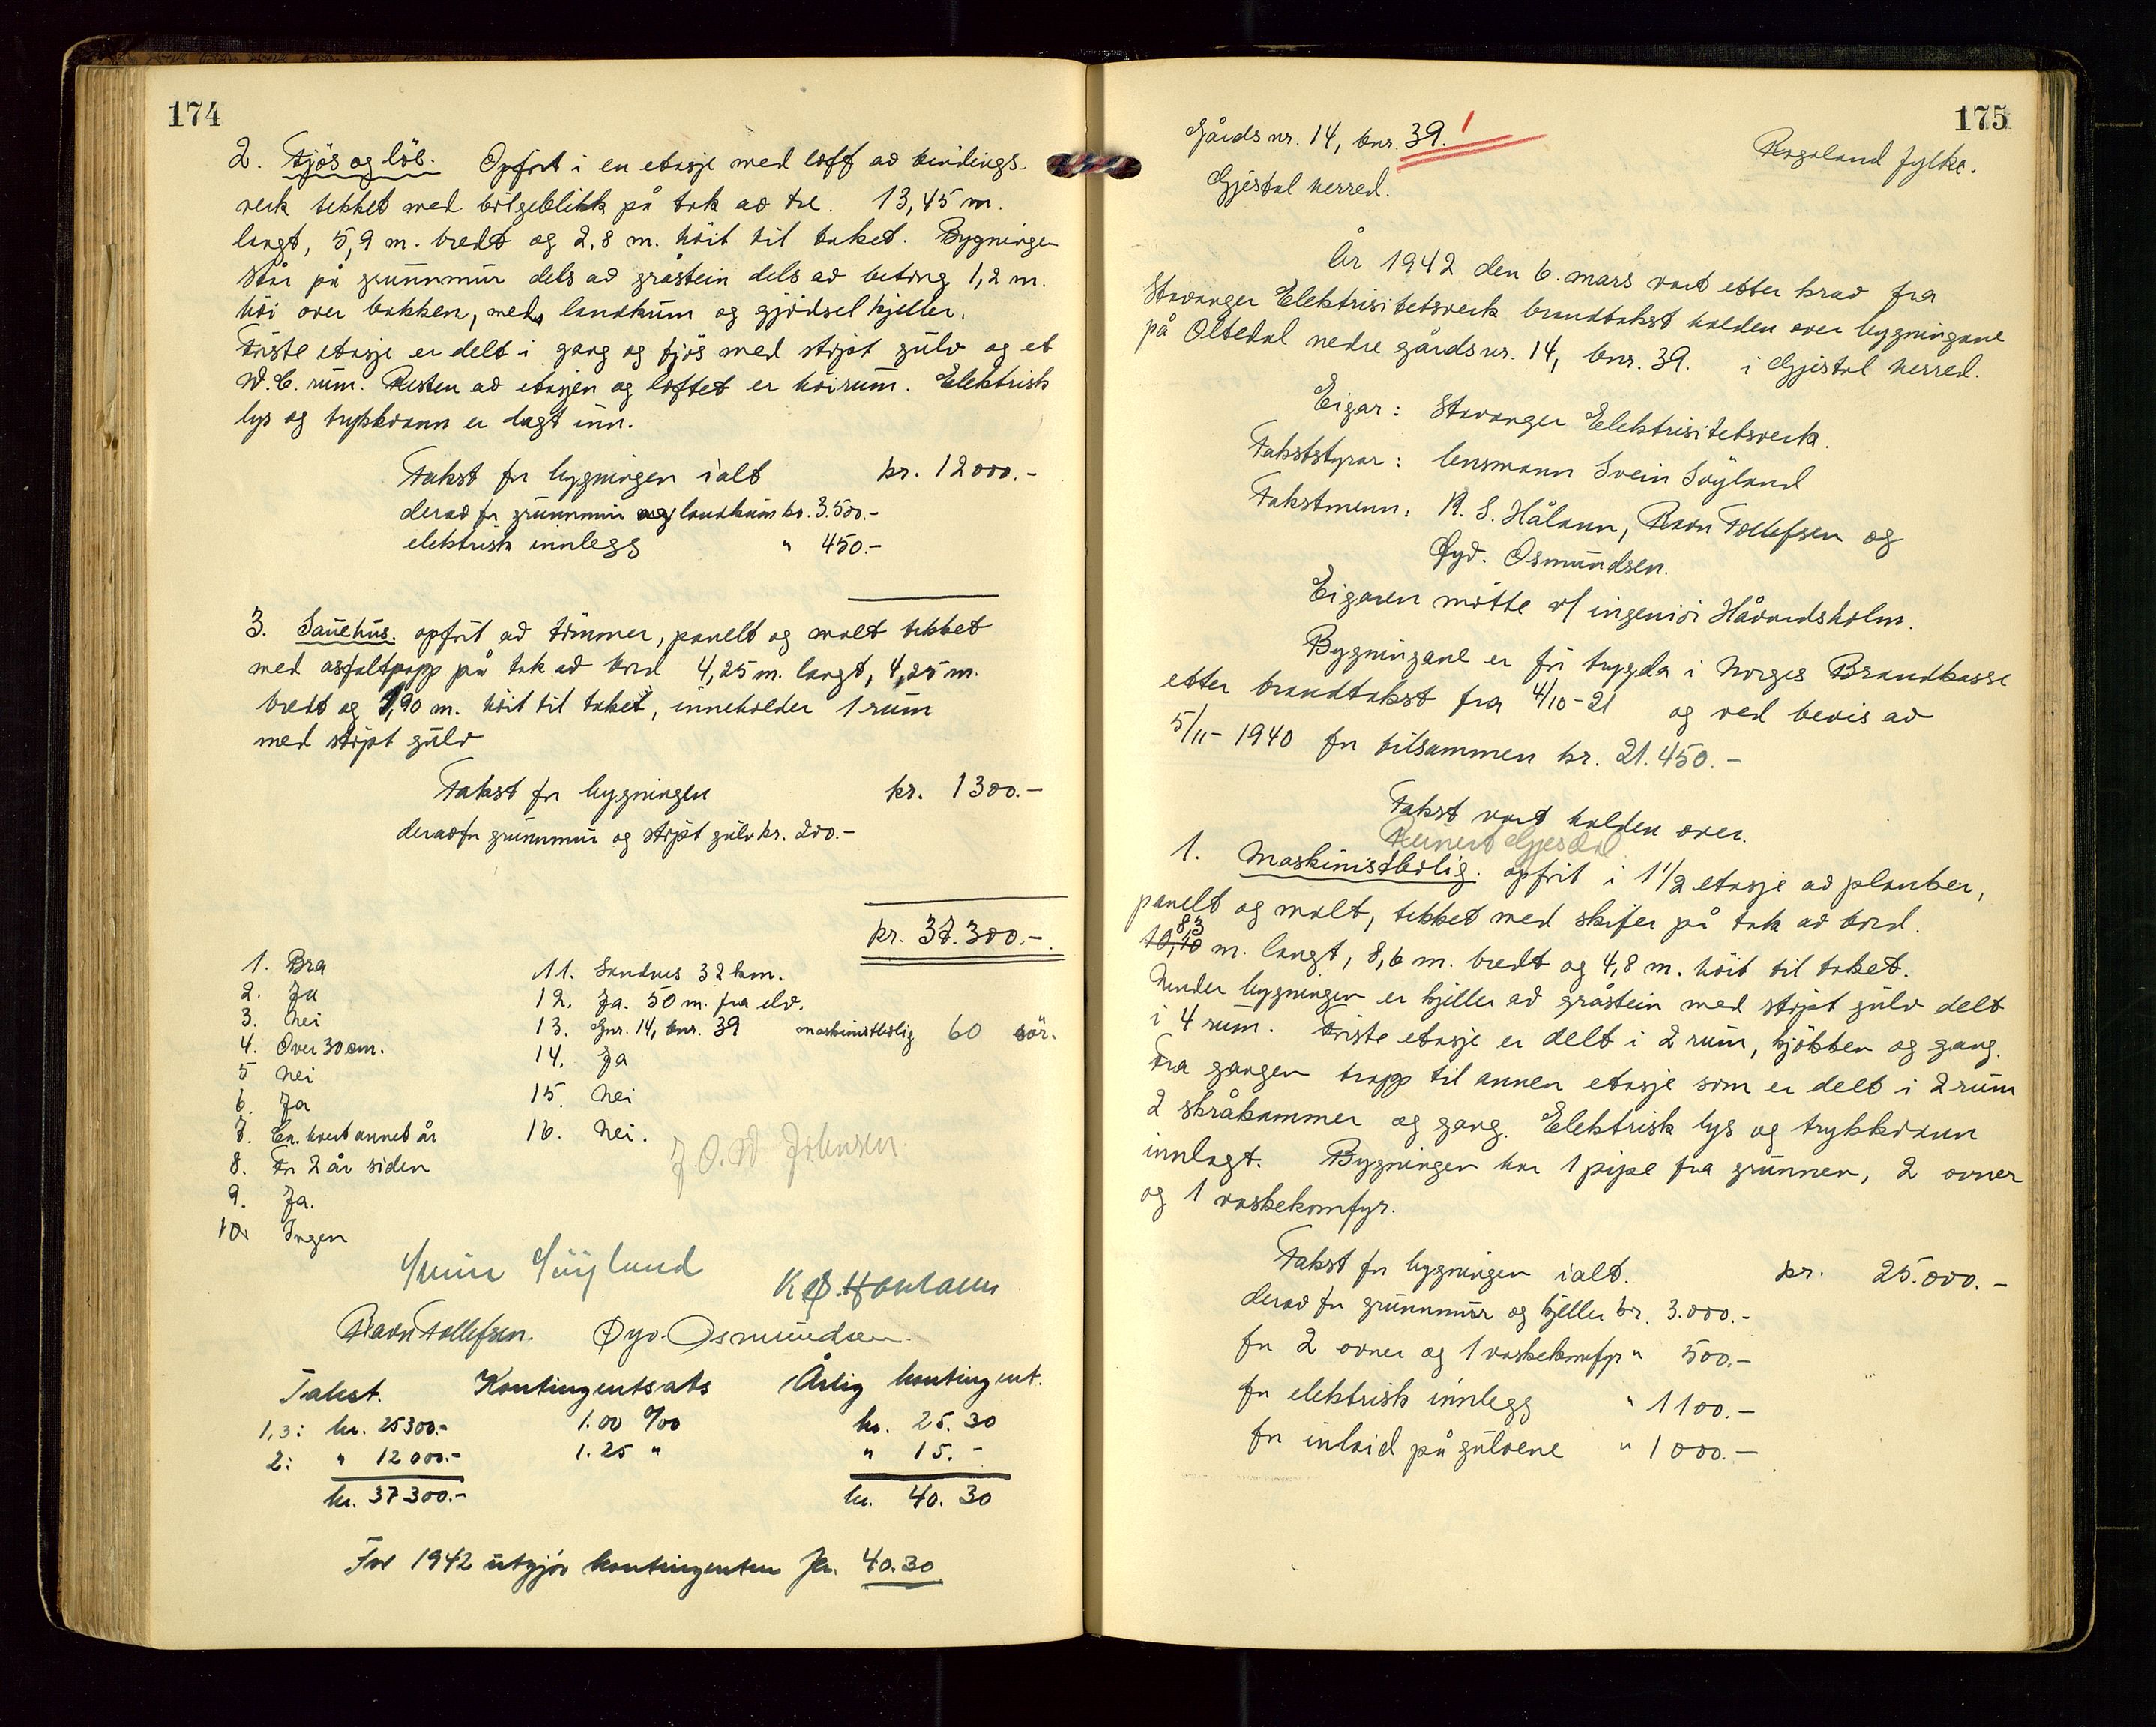 174
2. Fjös og löe. Opfört i en etasje med loft av bindings-
verk tekket med bölgeblikk på tak av tre. 13,45 m.
langt, 5,9 m. bredt og 2,8 m. höit til taket. Bygningen
står på grunnmur dels av gråstein dels av betong 1,2 m.
höi over bakken, med landkum og gjödselkjeller.
Förste etasje er delt i gang og fjös med stöpt gulv og et
W.C. rum. Resten av etasjen og loftet er höirum. Elektrisk
lys og trykkvann er lagt inn.
Takst for bygningen ialt kr. 12000.-
derav for grunnmur og landkum kr. 3.500.-
elektrisk innlegg " 450.-
3. Sauehus. opfört av tömmer, panelt og malt tekket
med asfaltpapp på tak av bord 4,25 m. langt, 4,25 m.
bredt og 1,90 m. höit til taket, inneholder 1 rum
med stöpt gulv
Takst for bygningen kr. 1300.-
derav for grunnmur og stöpt gulv kr. 200.-
kr. 37.300.-
1. Bra
2. Ja
3. Nei
4. Over 30 cm.
5 Nei
6. Ja
7. En. hvert annet år
8. For 2 år siden
9. Ja.
10. Ingen
11. Sandnes 32 km.
12. Ja. 50 m. fra elv.
13. Gnr. 14, bnr. 39 maskinistbolig 60 sör.
14. Ja
15. Nei
16. Nei.
J. O. W Johnsen
Svein Söyland
K. S. Haaland
Ravn Tollefsen. Øyv. Osmundsen.
Takst. Kontingentsats Årlig kontingent.
1,3: kr. 25300.- 1.00 ‰ kr. 25.30
2: " 12000.- 1.25 " " 15.-
kr. 37300.- kr. 40.30
For 1942 utgjör kontingenten kr. 40.30
175
Gårds nr. 14, bnr. 39.
Rogaland fylke.
Gjestal herred.
År 1942 den 6. mars vart etter krav fra
Stavanger Elektrisitetsverk brandtakst halden over bygningane
på Oltedal nedre gårdsnr. 14, bnr. 39. i Gjestal herred.
Eigar: Stavanger Elektrisitetsverk.
Takststyrar: lensmann Svein Söyland
Takstmenn: K. S. Håland, Ravn Tollefsen og
Øyv. Osmundsen.
Eigaren mötte v/ ingeniör Håvardsholm.
Bygningane er för trygda i Norges Brandkasse
etter brandtakst fra 4/10-21 og ved bevis av
5/11-1940 for tilsammen kr. 21.450.-
Takst vart halden over.
Reinert Gjesdal
1. Maskinistbolig. opfört i 1 1/2 etasje av planker,
panelt og malt, tekket med skifer på tak av bord.
8,3
10,40 m. langt, 8,6 m. bredt og 4,8 m. höit til taket.
Under bygningen er kjeller av gråstein med stöpt gulv delt
i 4 rum. Förste etasje er delt i 2 rum, kjökken og gang.
Fra gangen trapp til annen etasje som er delt i 2 rum
2 skråkammer og gang. Elektrisk lys og trykkvann
innlagt. Bygningen har 1 pipe fra grunnen, 2 ovner
og 1 vaskekomfyr.
Takst for bygningen ialt. kr. 25.000.-
derav for grunnmur og kjeller kr. 3.000.-
for 2 ovner og 1 vaskekomfyr " 500.-
for elektrisk innlegg " 1100.-
for inlaid på gulvene " 1000.-